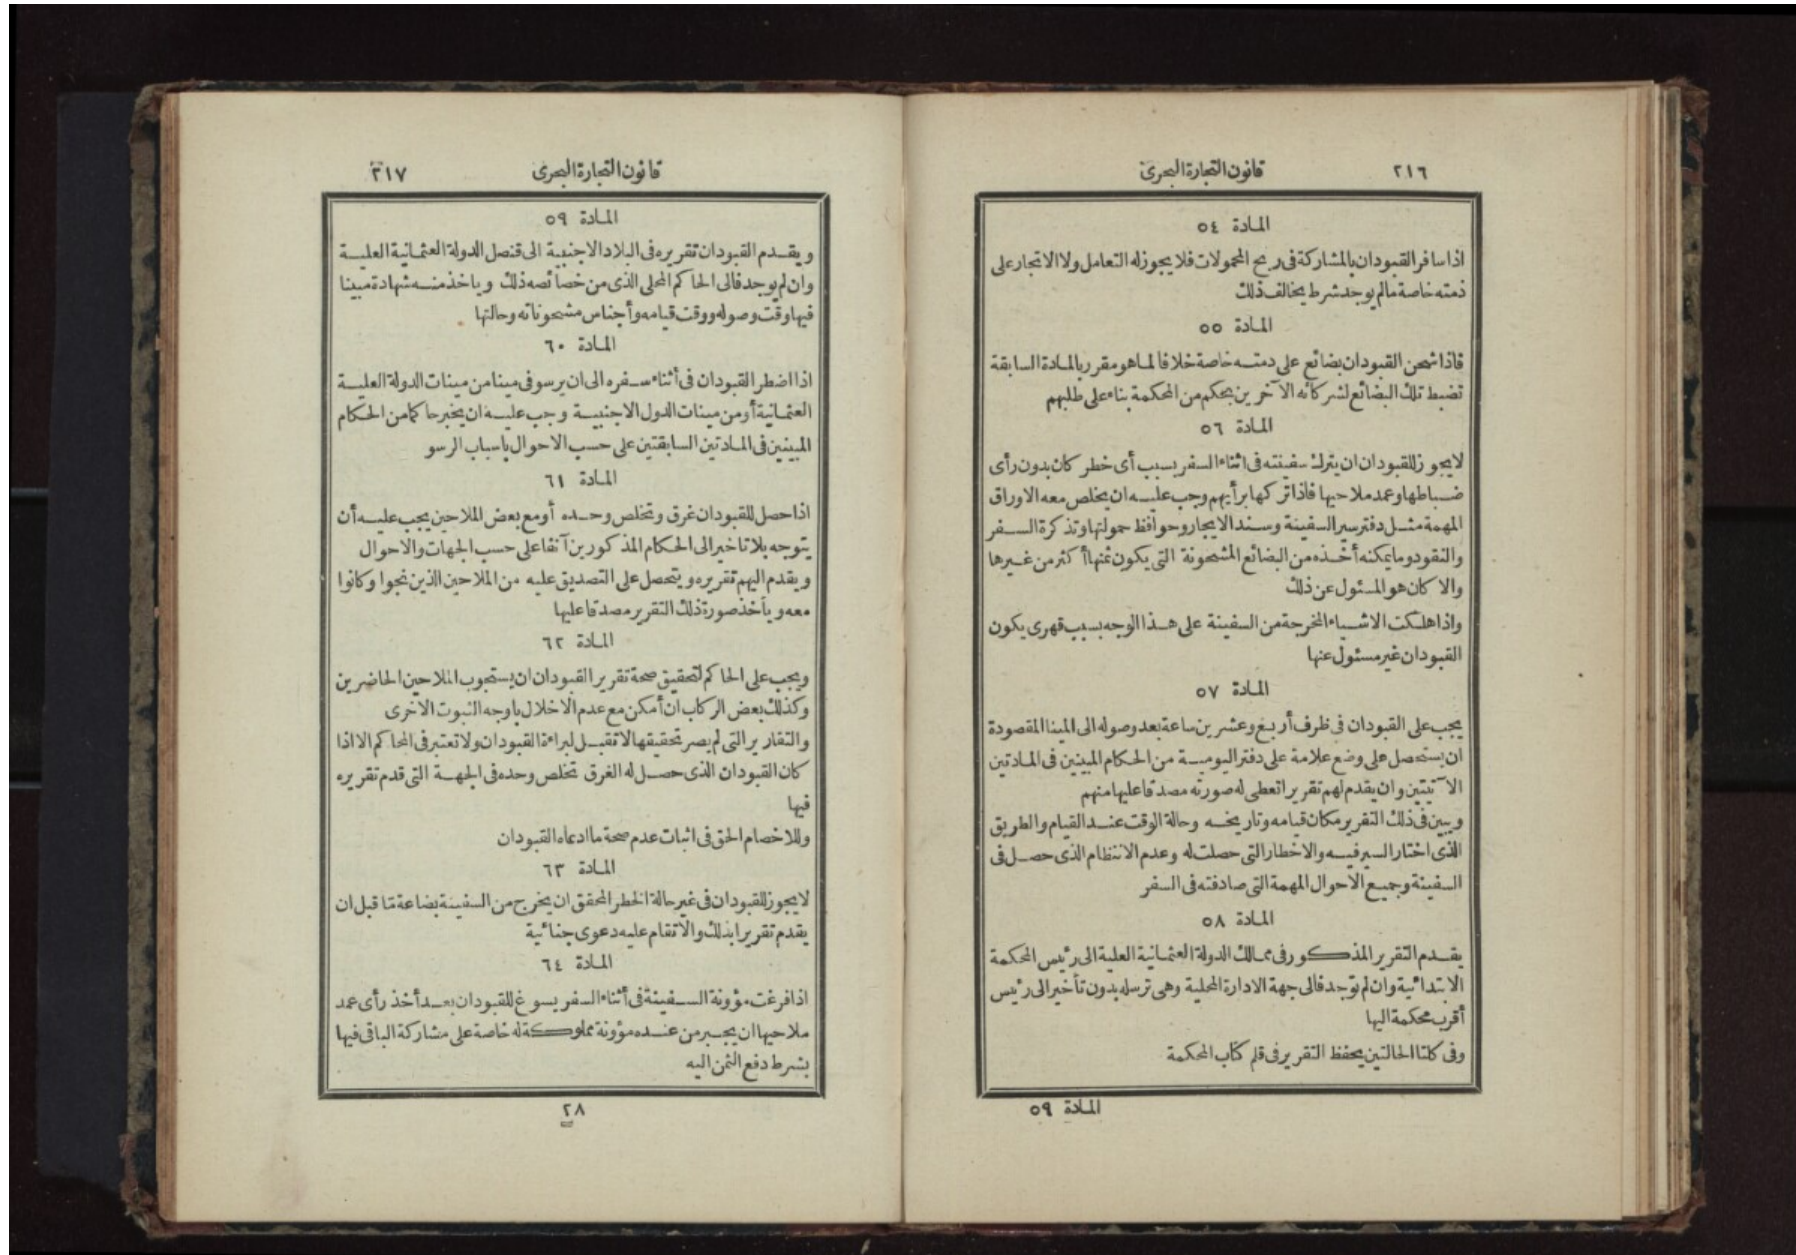 ٢١٦
قانون التجارة البحرى
المادة ٥٤
اذا سافر القبودان بالمشاركة فى ربح المحمولات فلا يجوز له التعامل ولا الاتجار على
ذمته خاصة مالم يوجد شرط يخالف ذلك
المادة ٥٥
فاذا شحن القبودان بضائع على ذمته خاصة خلافا لما هو مقرر بالمادة السابقة
تضبط تلك البضائع لشركائه الآخرين بحكم من المحكمة بناء على طلبهم
المادة ٥٦
لا يجوز للقبودان ان يترك سفينته فى اثناء السفر بسبب أى خطر كان بدون رأى
ضباطها وعمد ملاحيها فاذا تركها برأيهم وجب عليه ان يخلص معه الاوراق
المهمة مثل دفتر سير السفينة وسند الايجار وحوافظ حمولتها وتذكرة السفر
والنقود وما يمكنه أخذه من البضائع المشحونة التى يكون ثمنها أكثر من غيرها
والا كان هو المسئول عن ذلك
واذا هلكت الاشياء المخرجة من السفينة على هذا الوجه بسبب قهرى يكون
القبودان غير مسئول عنها
المادة ٥٧
يجب على القبودان فى ظرف أربع وعشرين ساعة بعد وصوله الى المينا المقصودة
ان يستحصل على وضع علامة على دفتر اليومية من الحكام المبينين فى المادتين
الآتيتين وان يقدم لهم تقريرا تعطى له صورته مصدقا عليها منهم
ويبين فى ذلك التقرير مكان قيامه وتاريخه وحالة الوقت عند القيام والطريق
الذى اختار السير فيه والاخطار التى حصلت له وعدم الانتظام الذى حصل فى
السفينة وجميع الاحوال المهمة التى صادفته فى السفر
المادة ٥٨
يقدم التقرير المذكور فى ممالك الدولة العثمانية العلية الى رئيس المحكمة
الابتدائية وان لم توجد فالى جهة الادارة المحلية وهى ترسله بدون تأخير الى رئيس
أقرب محكمة اليها
وفى كلتا الحالتين يحفظ التقرير فى قلم كتاب المحكمة
المادة ٥٩
قانون التجارة البحرى
٢١٧
المادة ٥٩
ويقدم القبودان تقريره فى البلاد الاجنبية الى قنصل الدولة العثمانية العلية
وان لم يوجد فالى الحاكم المحلى الذى من خصائصه ذلك وياخذ منه شهادة مبينا
فيها وقت وصوله ووقت قيامه وأجناس مشحوناته وحالتها
المادة ٦٠
اذا اضطر القبودان فى أثناء سفره الى ان يرسو فى مينا من مينات الدولة العلية
العثمانية أو من مينات الدول الاجنبية وجب عليه ان يخبر حاكما من الحكام
المبينين فى المادتين السابقتين على حسب الاحوال باسباب الرسو
المادة ٦١
اذا حصل للقبودان غرق وتخلص وحده أو مع بعض الملاحين يجب عليه أن
يتوجه بلا تاخير الى الحكام المذكورين آنفا على حسب الجهات والاحوال
ويقدم اليهم تقريره ويتحصل على التصديق عليه من الملاحين الذين نجوا وكانوا
معه ويأخذ صورة ذلك التقرير مصدقا عليها
المادة ٦٢
ويجب على الحاكم لتحقيق صحة تقرير القبودان ان يستجوب الملاحين الحاضرين
وكذلك بعض الركاب ان أمكن مع عدم الاخلال باوجه الثبوت الاخرى
والتقارير التى لم يصر تحقيقها لا تقبل لبراءة القبودان ولا تعتبر فى المحاكم الا اذا
كان القبودان الذى حصل له الغرق تخلص وحده فى الجهة التى قدم تقريره
فيها
وللاخصام الحق فى اثبات عدم صحة ما ادعاه القبودان
المادة ٦٣
لا يجوز للقبودان فى غير حالة الخطر المحقق ان يخرج من السفينة بضاعة ما قبل ان
يقدم تقريرا بذلك والا تقام عليه دعوى جنائية
المادة ٦٤
اذا فرغت مؤونة السفينة فى أثناء السفر يسوغ للقبودان بعد أخذ رأى عمد
ملاحيها ان يجبر من عنده مؤونة مملوكة له خاصة على مشاركة الباقى فيها
بشرط دفع الثمن اليه
٢٨